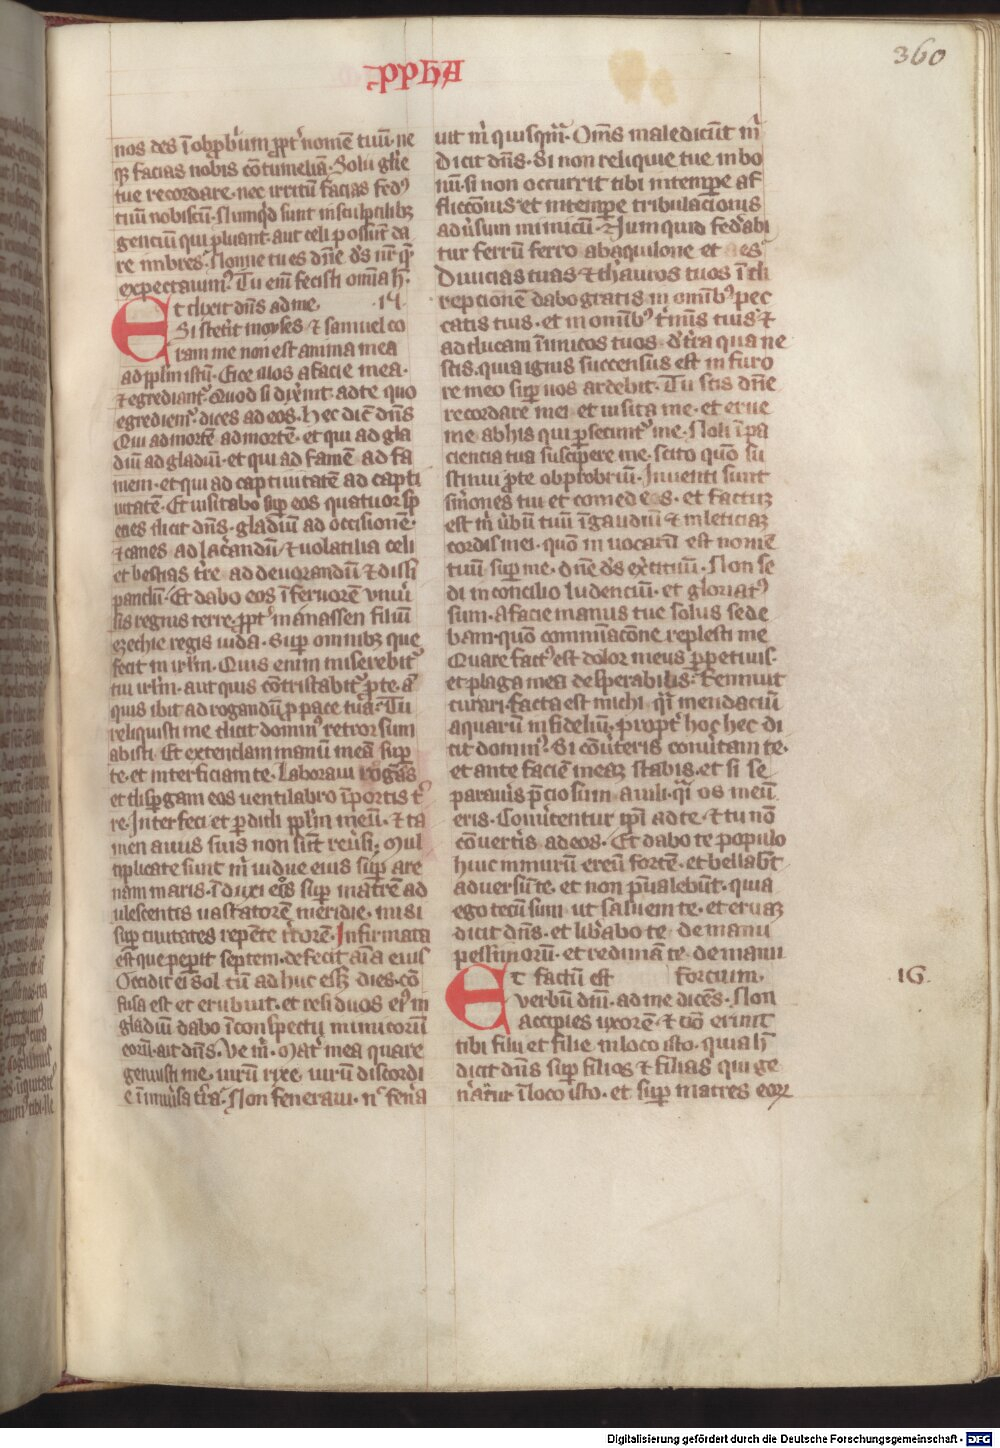 PPHA
360
nos des ī obp̄brium ꝓpt̄ nomē tuū· ne
qꝫ facias nobis cōtumeliā· Solii gl̄ie
tue recordare· nec irritū facias fedꝰ
tuū nobiscū· Nūmqͥd sunt in sculptilibꝫ
genciū qui pluant· aut celi possūt da
re imbres· Nonne tu es dn̄e d̄s nr̄ qͤ
expectauimꝰ Tu em̄ fecisti omīa h̄·
Et dixit dn̄s ad me· 14·
Si stetīt moyses ⁊ samuel co
ram me non est anima mea
ad ppl̄m istū· Eice illos a facie mea·
⁊ egrediant᷑· Quod si dix̄int· ad te quo
egrediem᷑· dices ad eos· Hec dic̄ dn̄s
Qui ad mortē ad mortē· et qui ad gla
diū ad gladiū· et qui ad famē ad fa
mem· et qui ad captiuitatē ad capti
uitatē· Et uisitabo sup̄ eos quatuor sp̄
cies dicit dn̄s· gladiū ad occisionē·
⁊ canes ad lac̄andū/ ⁊ uolatilia celi
et bestias tr̄e ad deuorandū ⁊ dissi
pandū· Et dabo eos ī feruorē vniū
sis regnis terre· ꝓpt̄ manassen filiū
ezechie regis iuda· Sup̄ omnibꝫ que
fecit in irl̄m· Quis enim miserebit᷑
tui irl̄m· aut quis cōtristabit᷑ p̄ te· a᷑
quis ibit ad rogandū p̄ pace tua· Tu
reliquisti me dicit dominꝰ retrorsum
abisti· Et extendam manū meā sup̄
te· et interficiam te· Laboraui rogās
et disp̄gam eos uentilabro ī portis t᷑
re· Interfeci et p̄didi ppl̄m meū· ⁊ ta
men a uiis suis non sūt reūsi· Mul
tiplicate sunt m̄ uidue eius sup̄ are
nam maris· īduxi eis sup̄ matrē ad
ulescentis uastatorē meridie· misi
sup̄ ciuitates repēte t̄rorē· Infirmata
est que pep̄it septem· defecit aīa eius
Occidit ei sol· cū adhuc eēꝫ dies· cō
fusa est et erubuit· et residuos eiꝰ in
gladiū dabo ī conspectu inimicorū
eorū· ait dn̄s· Ve m̄· Mat᷑ mea quare
genuisti me· uirū rixe· uirū discordi
e ī uniūsa t̄ra· Non feneraui· nͨ fen̄a
uit m̄ quisqͣm· Om̄s maledicūt m̄
Dicit dn̄s· Si non reliquie tue in bo
nū· si non occurri tibi in temp̄e af
fliccōnis et in temp̄e tribulacionis
adūsum inimicū· Numquid fed̄abi
tur ferrū ferro ab aquilone et aes
Diuicias tuas ⁊ th̄auros tuos ī di
repcionē dabo gratis in om̄ibꝰ pec
catis tuis· et in omībꝰ t̄mīs tuis ⁊
adducam īimicos tuos· d᷑ t̄ra qua ne
scis· quia ignis succensus est in furo
re meo sup̄ uos ardebit· Tu scis dn̄e
recordare mei· et uisita me· et erue
me ab his qui p̄secunt᷑ me· Noli ī pa
ciencia tua suscipere me· scito quō su
stinui p̄ te obprobriū· Inuenti sunt
sm̄ones tui et comedi eos· et factuꝫ
est m̄ ūbū tuū ī gaudiū ⁊ in leticiaꝫ
cordis mei· quō inuocatū est nomē
tuū sup̄ me· dn̄e d̄s exercituū· Non se
di in concilio ludenciū· et gloriatꝰ
sum· a facie manus tue solus sede
bam· quō commīacōne replesti me
Quare factꝰ est dolor meus p̄petuus·
et plaga mea desperabilis· Rennuit
curari· facta est michi q̄i mendaciū
aquarū infideliū· propt̄ hoc hec di
cit dominꝰ· Si cōūteris conūtam te·
et ante faciē meaꝫ stabis· et si se
parauīs p̄ciosum a uili· q̄i os meū
eris· Conūtentur ipī ad te· ⁊ tu nō
cōuertīs ad eos· Et dabo te populo
huic in murū ereū fortē· et bellabūt
aduersū te· et non p̄ualebūt· quia
ego tecū sum ut saluem te· et eruaꝫ
dicit dn̄s· et lib̄abo te de manu
pessimorū· et redimā te· de manu
Et factū est forcium·
16·
verbū dnī· ad me dicēs· Non
accipies uxorē· ⁊ nō erunt
tibi filii et filie in loco isto· quia h̄
dicit dn̄s sup̄ filios ⁊ filias qui ge
n̄atur ī loco isto· et sup̄ matres eoꝝ
Digitalisierung gefördert durch die Deutsche Forschungsgemeinschaft - DFG